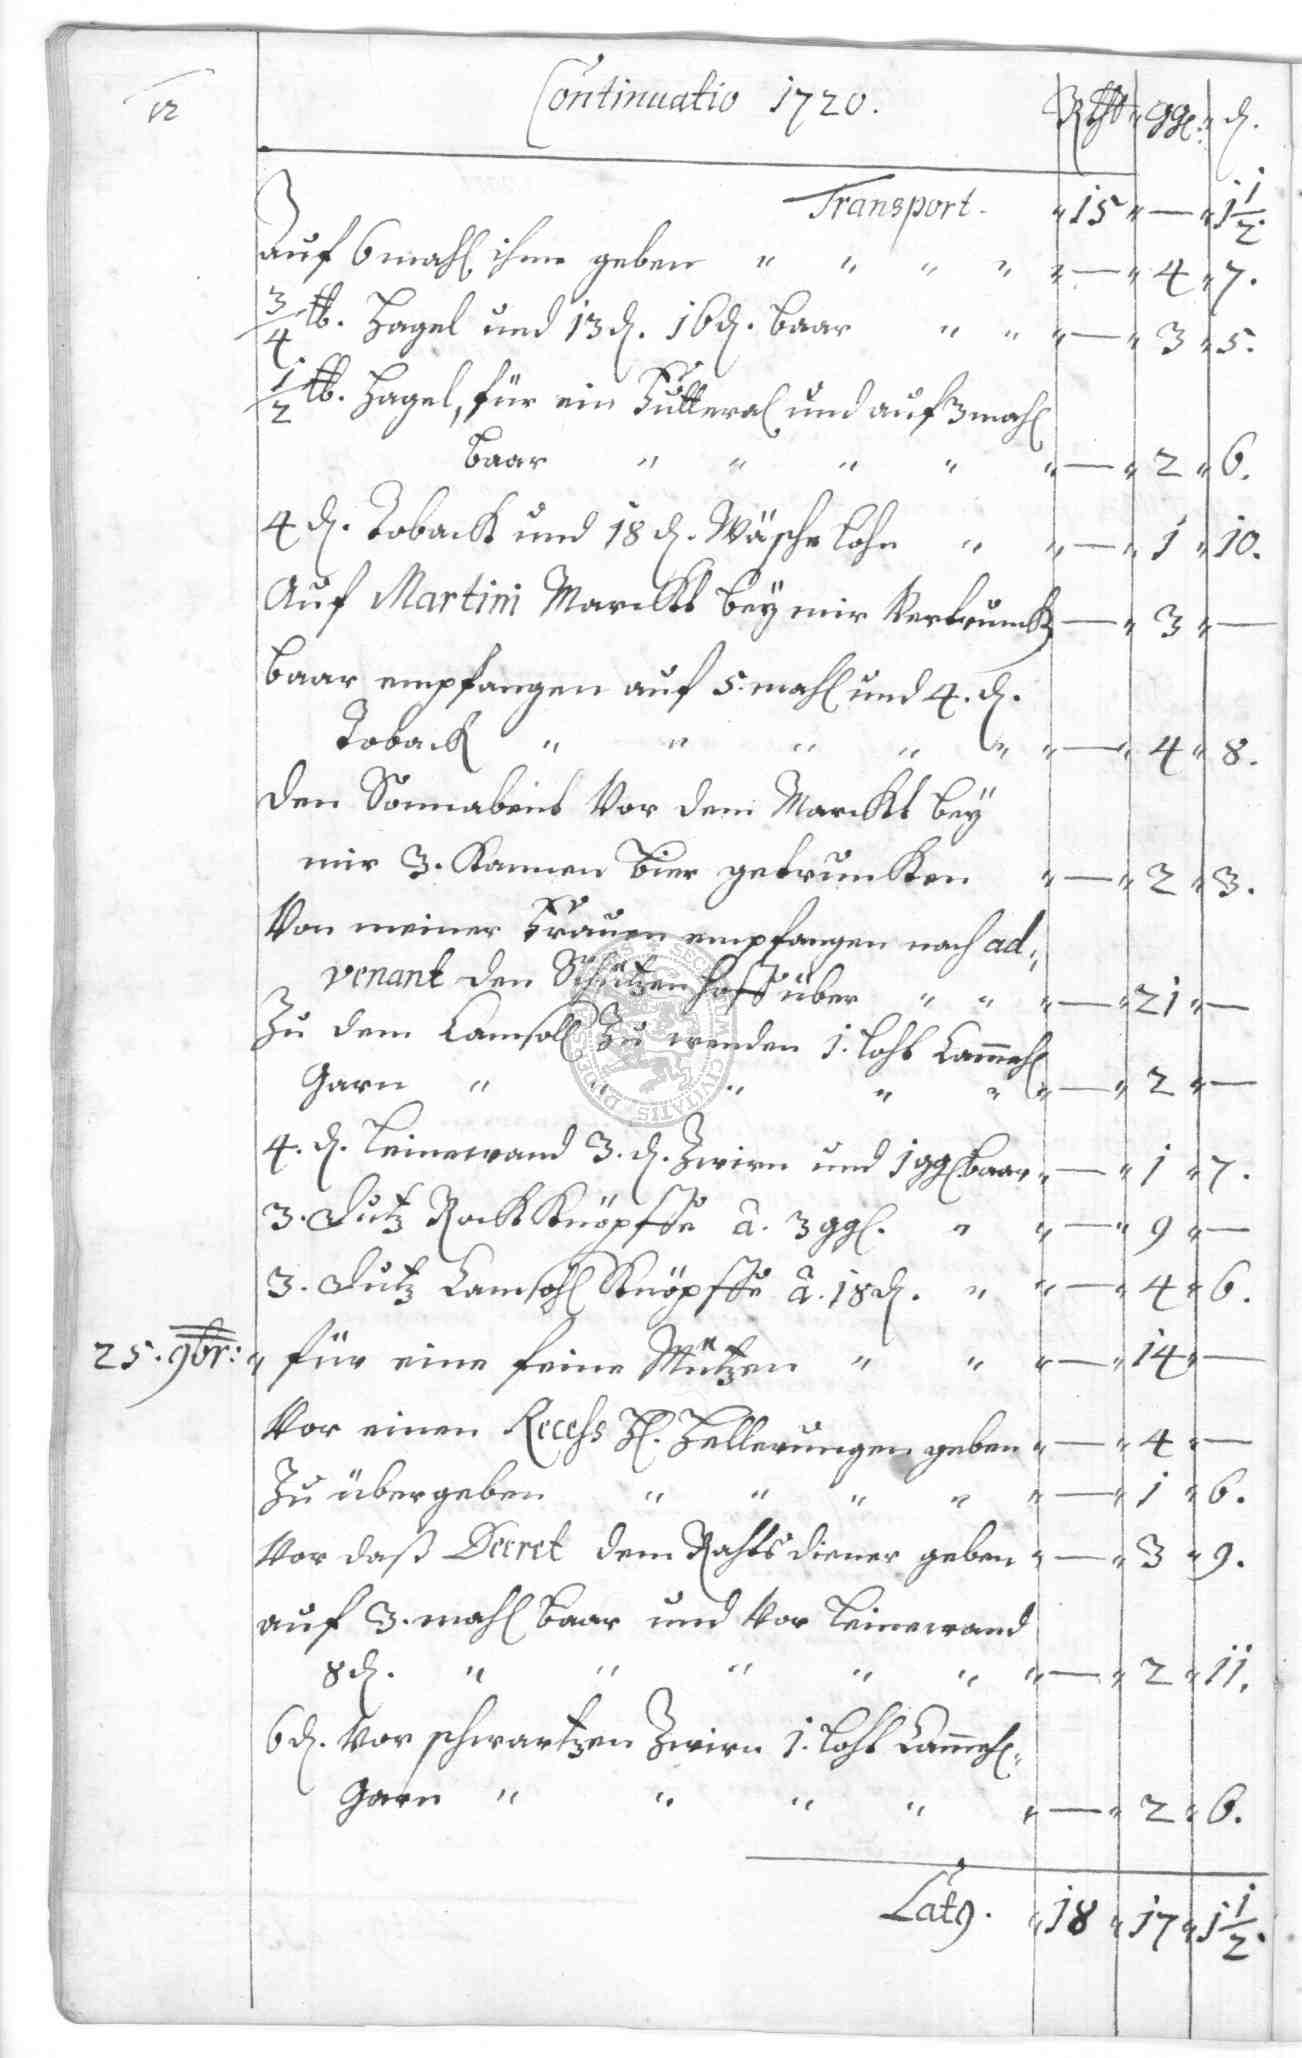 12
Continuatio 1720.
Rthl ggl. d.
Transport. 15 — 1 1/2
auf 6 mahl ihme geben " " " " — 4 7.
3/4 lb. Hagel und 13 d. 16 d. baar " " — 3 5.
1/2 lb. Hagel, für ein Futteral und auf 3 mahl
baar " " " " — 2 6.
4 d. Toback und 18 d. Wäsche lohn " — 1 10.
Auf Martini Marckt bey mir Vertrunck — 3 —
baar empfangen auf 5. mahl und 4. d.
Toback " " " " " — 4 8.
den Sonnabent Vor dem Marckt bey
mir 3. Kannen bier getruncken — 2 3.
Von meiner Frauen empfangen nach ad-
venant den Schützenhoff über " " — 21 —
Zu dem Camsoll Zu wenden 1. loht Cammehl
Garn " " " " " — 2 —
4. d. leinewand 3. d. Zwirn und 1 ggl baar — 1 7.
3. Dutz Rock Knöpffe à. 3 ggl. " — 9 —
3. Dutz Camsohl Knöpffe à. 18 d. " — 4 6.
25. 9br: für eine feine Mützen " " — 14 —
Vor einen Recess H. geben — 4 —
Zu übergeben " " " " — 1 6.
Vor daß Decret dem Rahtsdiener geben — 3 9.
auf 3. mahl baar und Vor leinewand
8 d. " " " " " — 2 11.
6 d. Vor schwartzen Zwirn 1. loht Cammehl
Garn " " " " — 2 6.
Lat9. 18 17 1 1/2.